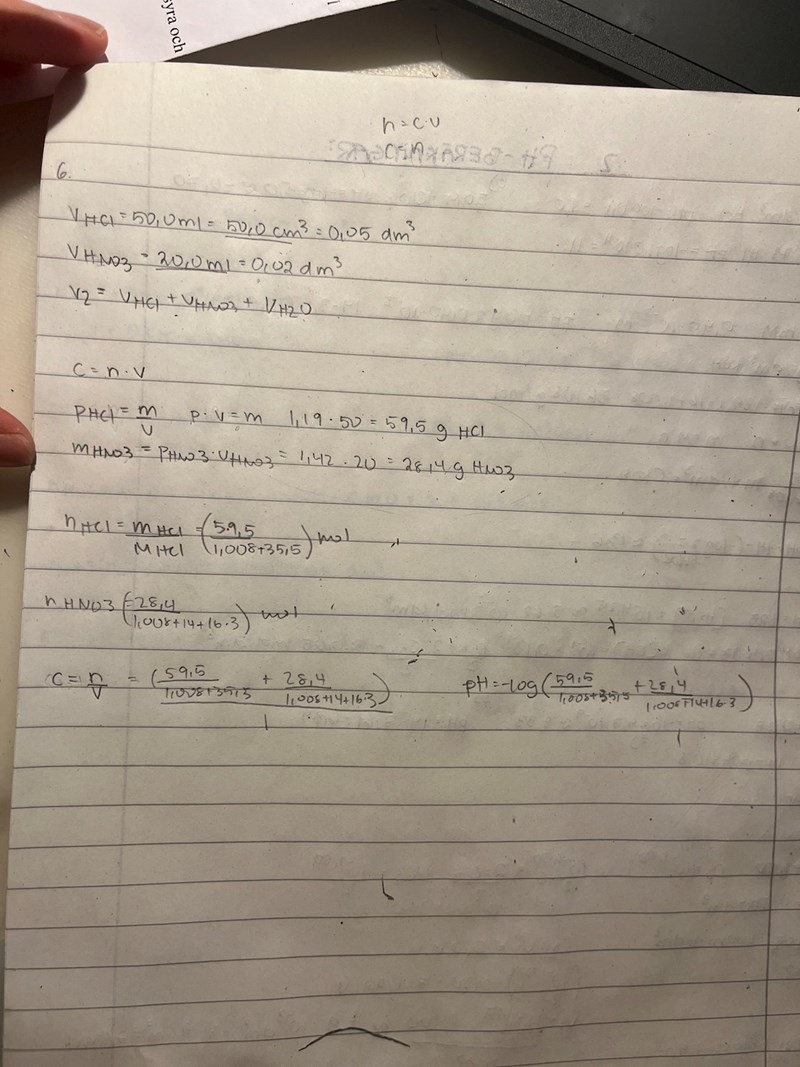 syra och
n = c·v
c = n
6.
VHCl = 50,0ml = 50,0 cm³ = 0,05 dm³
VHNO3 = 20,0ml = 0,02 dm³
V2 = VHCl + VHNO3 + VH2O
C = n · V
PHCl = m/V P · V = m 1,19 · 50 = 59,5 g HCl
mHNO3 = PHNO3 · VHNO3 = 1,42 · 20 = 28,4 g HNO3
nHCl = mHCl/MHCl = (59,5/1,008+35,5) mol
nHNO3 = (28,4/1,008+14+16·3) mol
C = n/V = (59,5/1,008+35,5 + 28,4/1,008+14+16·3)/1 pH = -log(59,5/1,008+35,5 + 28,4/1,008+14+16·3)